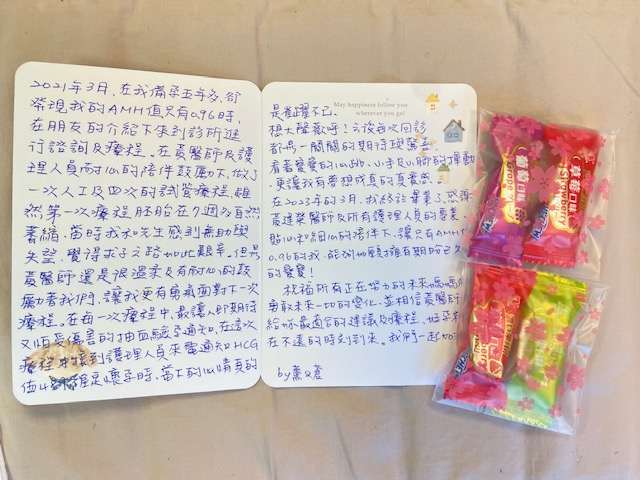 2021年3月,在我備孕五年多,卻
發現我的AMH值只有0.96時,
在朋友的介紹下來到診所進
行諮詢及療程。在黃醫師及護
理人員耐心的陪伴鼓勵下,做了
一次人工及四次的試管療程,雖
然第一次療程胚胎在7週多自然
萎縮,當時我和先生感到無助與
失望,覺得求子之路如此艱辛。但是
黃醫師還是很溫柔及有耐心的鼓
勵著我們,讓我更有勇氣面對下一次
療程。在每一次療程中,最讓人即期待
又怕受傷害的抽血驗孕通知,在這次
療程中接到護理人員來電通知HCG
值 確定是懷孕時,當下的心情真的
May happiness follow you
wherever you go!
是雀躍不已,
想大聲歡呼!之後每次回診
都是一關關的期待跟驚喜,
看著寶寶的心跳、小手及小腳的揮動
更讓我有夢想成真的真實感。
在2023年的3月,我終於畢業了,感謝
黃建榮醫師及所有護理人員的專業、
貼心和細心的陪伴下,讓只有AMH
0.96的我,能夠如願擁有期盼已久
的寶寶!
祝福所有正在努力的未來媽媽們
勇敢未來一切的變化,並相信黃醫師
給妳最適合的建議及療程,好孕
在不遠的時刻到來。我們一起加
by蕭
葡萄口味
Grape
草莓口味
Strawberry